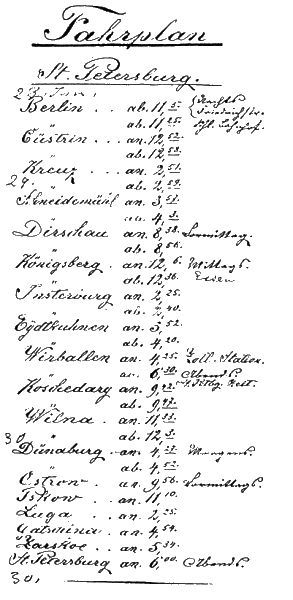 Fahrplan
St. Petersburg.
23. Juni.
Berlin . . ab. 11, 5. Nachts
" ab. 11, 25. Friedrichstr.
Cüstrin . . . an. 12, 52. Schl. Bahnhof.
" ab. 12, 58.
Kreuz . . an. 2, 51.
29. " ab. 2, 59.
Schneidemühl an. 3, 57.
ab. 4, 3.
Dirschau an. 8, 38. Vormittag.
" ab. 8, 56.
Königsberg . an. 12, 6. Mittags.
" ab. 12, 36. Essen
Insterburg an. 2, 25.
" ab. 2, 40.
Eydtkuhnen an. 3, 52.
" ab. 4, 20.
Wirballen an. 4, 25. Zoll-Station.
" an. 6, 30. Abends.
Koschedary an. 9, St. Petbg. Zeit.
" ab. 9, 47.
Wilna . . an. 11, 33.
" ab. 12, 3.
30
Dünaburg . an. 4, 37. Morgens.
" ab. 4, 52.
Ostrow . an. 9, 56. Vormittags.
Pskow . . an. 11, 10.
Luga . . an. 2, 25.
Gatschina . an. 4, 54.
Zarskoe . an. 5, 34.
St. Petersburg an. 6, 00. Abends.
30.